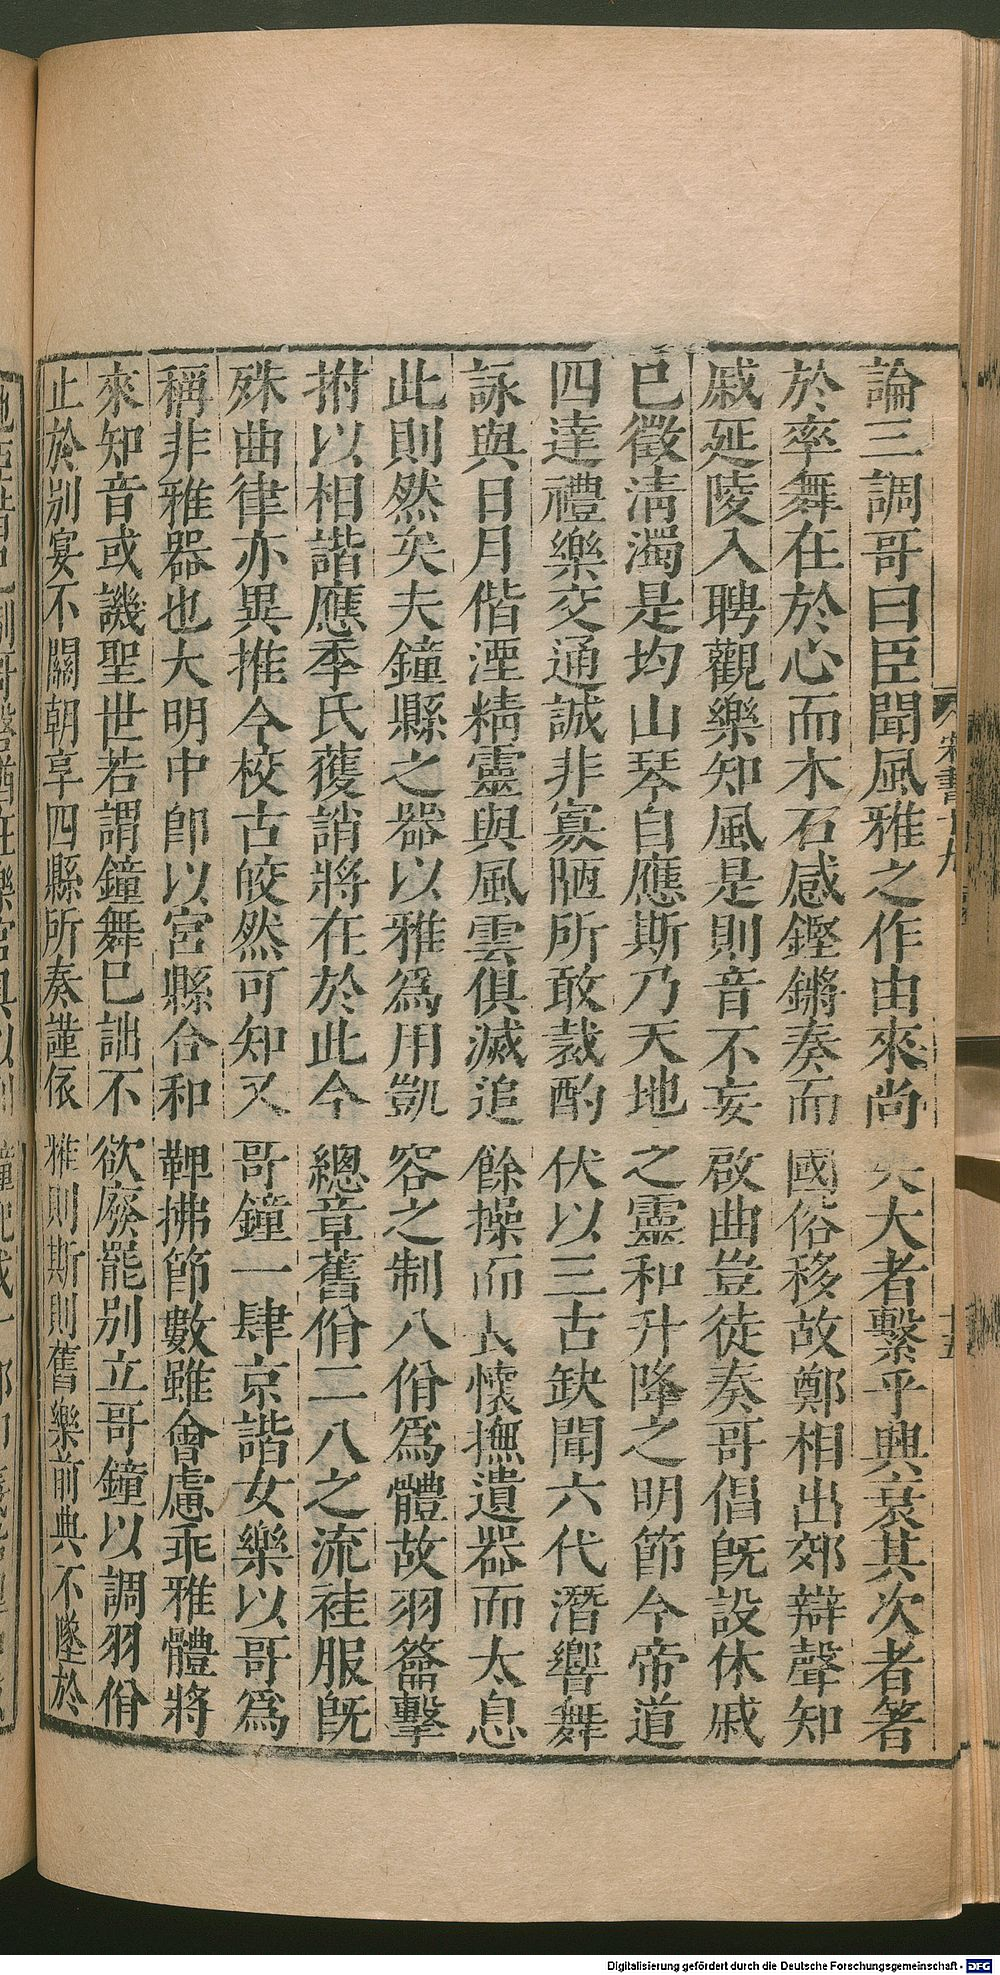 論三調哥曰臣聞風雅之作由來尚矣大者繫乎興衰其次者著
於率舞在於心而木石感鏗鏘奏而國俗移故鄭相出郊辯聲知
戚延陵入聘觀樂知風是則音不妄啟曲豈徒奏哥倡旣設休戚
已徵淸濁是均山琴自應斯乃天地之靈和升降之明節今帝道
四達禮樂交通誠非寡陋所敢裁酌伏以三古缺聞六代潛響舞
詠與日月偕湮精靈與風雲俱滅追餘操而長懷撫遺器而太息
此則然矣夫鐘縣之器以雅爲用凱容之制八佾爲體故羽籥擊
拊以相諧應季氏獲誚將在於此今總章舊佾二八之流袿服旣
殊曲律亦異推今校古皎然可知又哥鐘一肆克諧女樂以哥爲
稱非雅器也大明中卽以宮縣合和鞞拂節數雖會慮乖雅體將
來知音或譏聖世若謂鐘舞已諧不欲廢罷別立哥鐘以調羽佾
止於別宴不關朝享四縣所奏謹依雅則斯則舊樂前典不墜於
宋書十九
十五
Digitalisierung gefördert durch die Deutsche Forschungsgemeinschaft - DFG